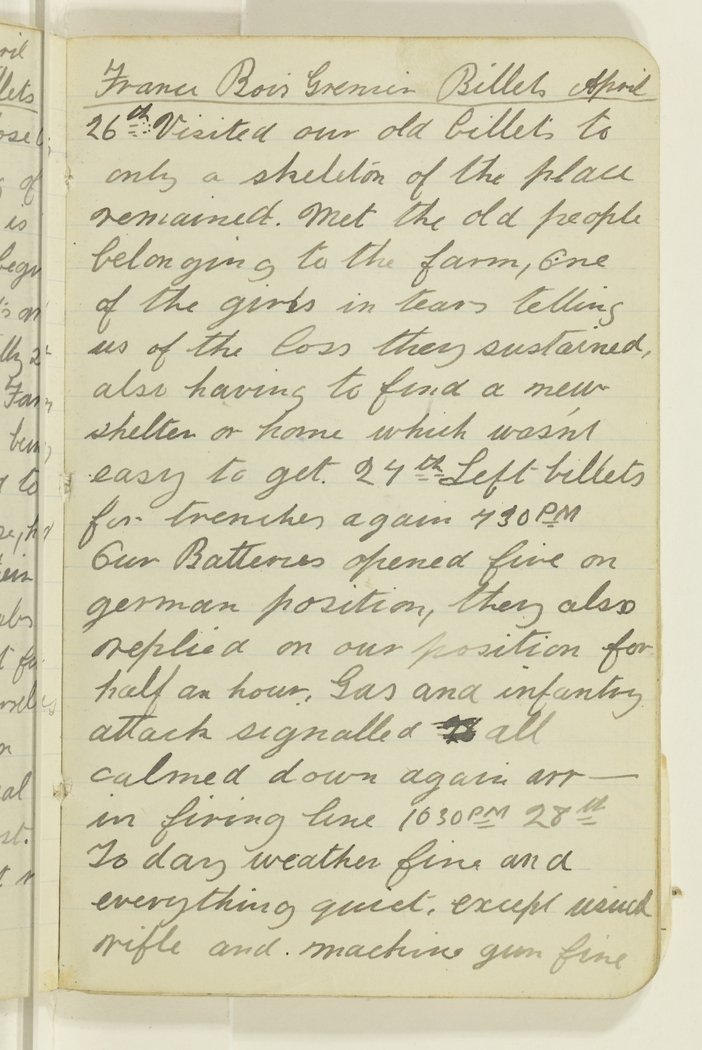 ril
France Bois Grenier Billets April
26th Visited our old billets to
only a skeleton of the place
remained. Met the old people
belonging to the farm, One
of the girls in tears telling
us of the loss they sustained,
also having to find a new
shelter or home which was'nt
easy to get. 27th Left billets
for trenches again 730 PM
Our Batteries opened fire on
german position, they also
replied on our position for
half an hour. Gas and infantry
attack signalled all
calmed down again arr —
in firing line 1030 PM 28th
To day weather fine and
everything quiet. except usual
rifle and machine gun fire